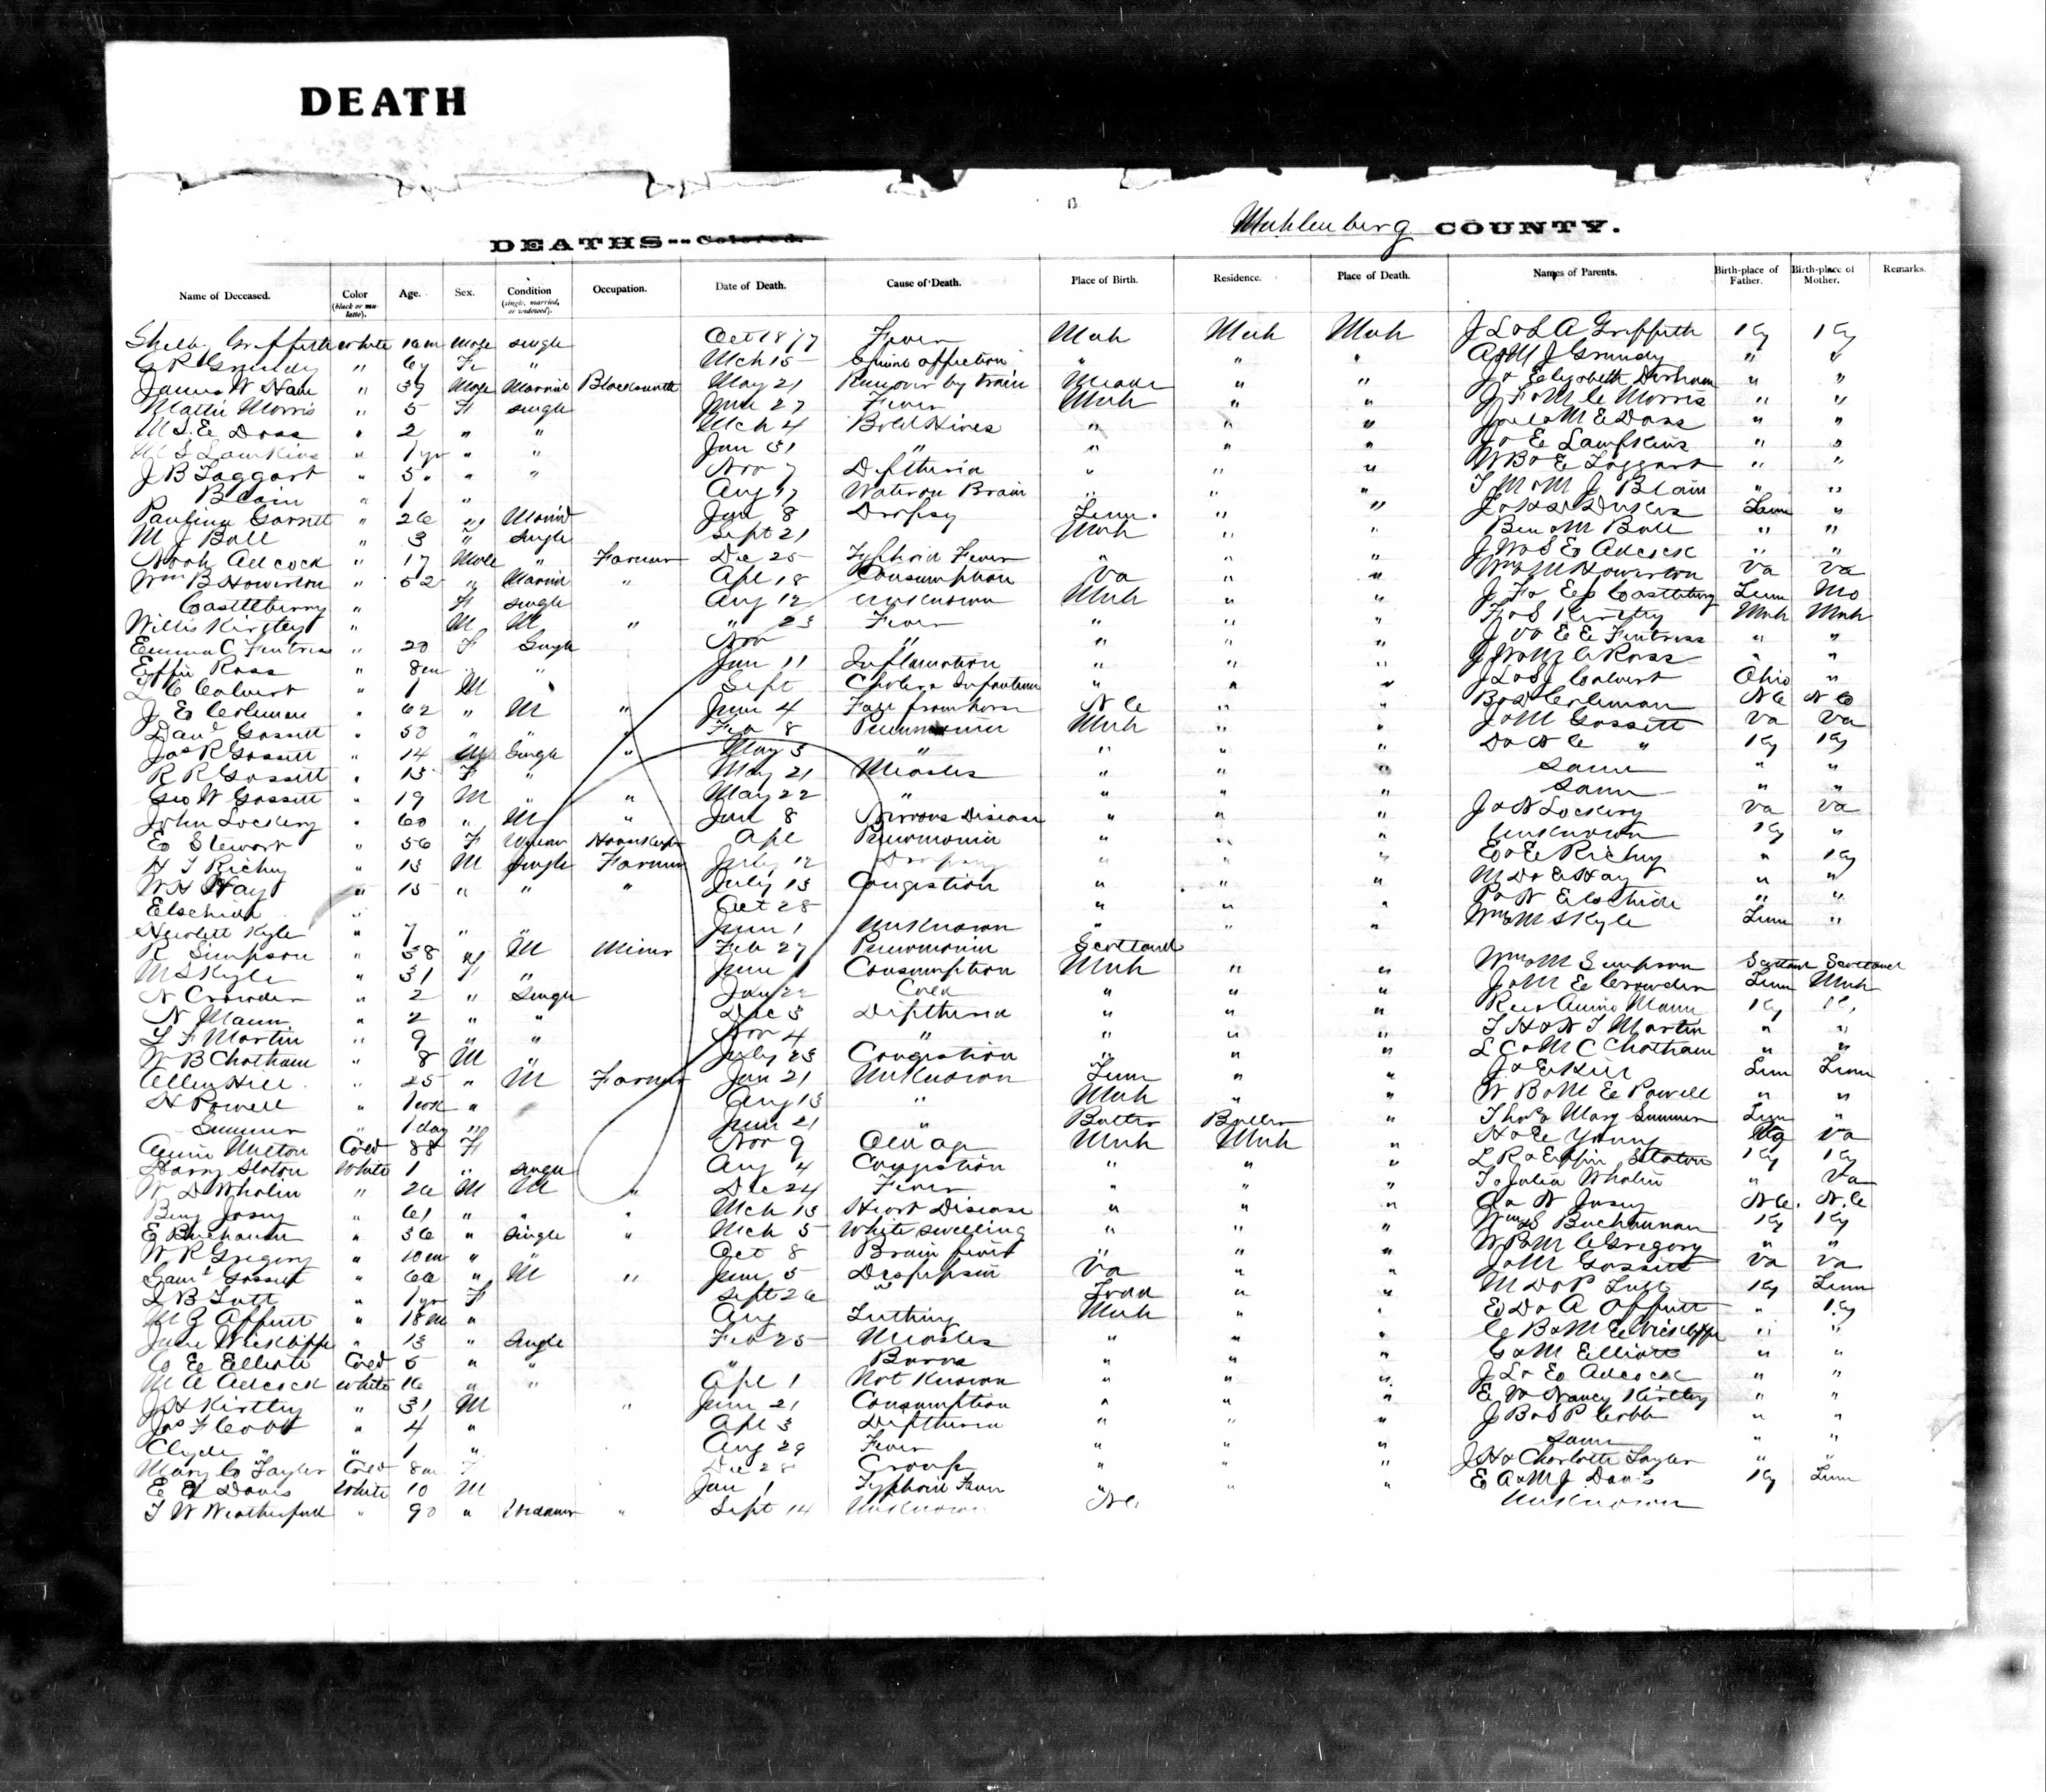 DEATH
DEATHS--Colored. Muhlenberg COUNTY.
Name of Deceased. Color (black or mulatto). Age. Sex. Condition (single, married, or widowed). Occupation. Date of Death. Cause of Death. Place of Birth. Residence. Place of Death. Names of Parents. Birth-place of Father. Birth-place of Mother. Remarks.
Griffith White male single Oct 18 Fever Muh Muh Muh J L & L A Griffith Ky Ky
G R Grundy " " Mch 15 affection " " " A & M J Grundy " "
James W Ham " 39 Male Married Blacksmith May 21 Run over by train Meade " " J & Elizabeth " "
Mattie Morris " 5 F single June 27 Fever Muh " " J F & M C Morris " "
M S E Doss " 2 " " Mch 4 Bold Hives " " " M E Doss " "
Lampkins " 1 yr " " Jan 31 " " " " J & E Lampkins " "
J B Taggart " 5 " " Nov 7 Diptheria " " " W B & E Taggart " "
Blain " 1 " Aug 17 Water on Brain " " " T M & M J Blain " "
Paulina Garrett " 26 " Married Jan 8 Dropsy Tenn. " " Tenn "
M J Ball " 3 " Single Sept 21 Muh " " Ben & M Ball " "
Noah Adcock " 17 Male " Farmer Dec 25 Typhoid Fever " " " J W & S E Adcock " "
Wm B Howerton " 52 " Married " Apl 18 Consumption Va " " Wm & M Howerton Va Va
Castleberry " F single Aug 12 unknown Muh " " J F & E Castleberry Tenn Mo
Willis Kirtley " M M " " 23 Fever " " " F & S Kirtley Muh Muh
Emma C Fentress " 20 F Single Nov " " " " J V & E E Fentress " "
Effie Ross " 8m " " Jan 11 Inflamation " " " J W & M C Ross " "
L C Calvert " 1 M " Sept Cholera Infantum " " " J L & S J Calvert Ohio "
J E Coleman " 62 " M " June 4 Fall from horse N C " " B & D Coleman N C N C
Danl Gossett " 50 " " " Feb 8 Pneumonia Muh " " J & M Gossett Va Va
Jas R Gossett " 14 M Single " May 3 " " " " D & N C " Ky Ky
R R Gossett " 15 F " May 21 Measles " " " Same " "
Geo W Gossett " 19 M " " May 22 " " " " Same " "
John Lockery " 60 " M " Jan 8 Nervous Disease " " " J & N Lockery Va Va
E Stewart " 56 F Widow Housekeeper Apl Pneumonia " " " Unknown Ky "
H T Richey " 13 M Single Farmer July 12 Dropsy " " " E & E Richey " Ky
W H Hay " 15 " " " July 13 Congestion " " " M D & E Hay " "
Elschide " Oct 28 " " " P & N Elschide " "
Hewlett Kyle " 7 " " June 1 Unknown " Wm & M S Kyle Tenn "
R Simpson " 38 " M Miner Feb 27 Pneumonia Scotland Wm & M Simpson Scotland Scotland
M S Kyle " 31 F " June 1 Consumption Muh " " J & M E Crowder Tenn Muh
N Crowder " 2 " Single Jan 22 Cold " " "
N Mann " 2 " " Dec 3 Diptheria " " " Annie Mann Ky Ky
L F Martin " 9 " " Nov 4 " " " " T H & N T Martin " "
W B Chatham " 8 M " July 23 Congestion " " " L C & M C Chatham " "
Allen Hill " 25 " M Farmer Jan 21 Unknown Tenn " " J & E Hill Tenn Tenn
H Powell " 1 wk " Aug 13 " Muh " " W B & M E Powell " "
Sumner " 1 day " June 21 " Butler Butler " Thos & Mary Sumner Tenn "
Annie Milton Cold 88 F Nov 9 Old age Muh Muh " H & E Young Va Va
Harry Slaton White 1 " Single Aug 4 Congestion " " " L R & Effie Slaton Ky Ky
W D Wholin " 26 M M " Dec 24 Fever " " " T & Julia Wholin " Va
Benj Josey " 61 " " " Mch 13 Heart Disease " " " N Josey N C N C
E Buchanan " 36 " Single " Mch 5 White swelling " " " Wm & S Buchanan Ky Ky
W R Gregory " 10m " " Oct 8 Brain fever " " " M C Gregory " "
Saml Gossett " 60 " M " June 5 Despepsia Va " " J & M Gossett Va Va
J B Tutt " 1 yr F Sept 26 " Todd " " M D & P Tutt Ky Tenn
Affutt " 18m " Aug Teething Muh " " E D & A Offutt " Ky
June Wickliffe " 13 " Single Feb 25 Measles " " " C B & M E Wickliffe " "
C E Elliott Cold 5 " " " Burns " " " G & M Elliott " "
M A Adcock White 16 " " Apl 1 Not Known " " " J L & E Adcock " "
J H Kirtley " 31 M " June 21 Consumption " " " E W & Nancy Kirtley " "
Jas F Cobb " 4 " Apl 3 Diptheria " " " J B & S P Cobb " "
Clyde " " 1 " Aug 29 Fever " " " Same " "
Mary C Taylor Cold 8m F Dec 28 Croup " " " J H & Charlotte Taylor " "
E A Davis White 10 M Jan 1 Typhoid Fever " " " E A & M J Davis Ky Tenn
T W Weatherford " 90 " Widower " Sept 14 Unknown N C Unknown